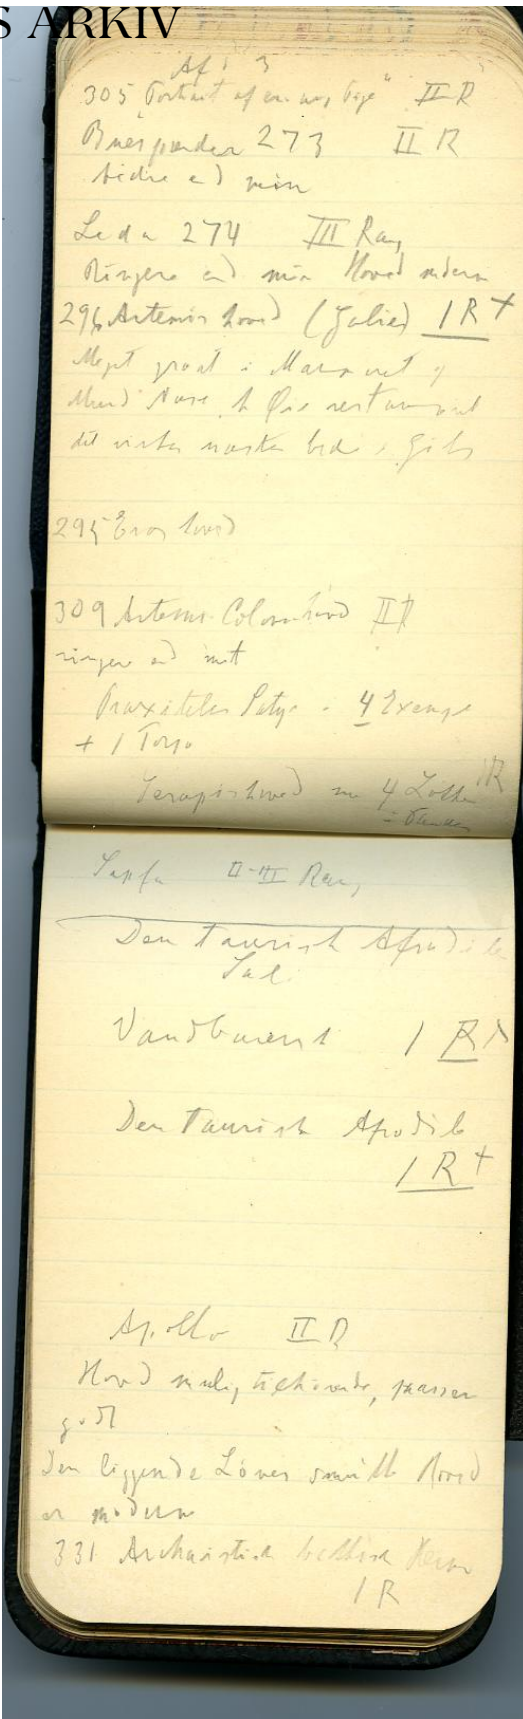 S ARKIV
Af: 3
305 "Portræt af en ung Pige" II R
Buespænder 273 II R
bedre end min
Leda 274 III Rang
Ringere end min Hoved modern
296 Artemis hoved (Gabies) 1 R +
Meget groat i Marmoret og
Mund Næse
det virker næsten bedre i Gibs
295 Eros hoved
309 Artemis Colonna hoved II R
ringere end mit
Praxiteles Satyr i 4 Exempl
+ 1 Torso
Serapishoved m 4 Lokker 1R
i Panden
Sapfo II-III Rang
Den taurisk Afrodite
Sal
Vandbærerst 1 R
Den Taurisk Afrodite
1 R +
Apollo II R
Hoved mulig tilhørende, passer
godt
Den liggende Löves smukke Hoved
er modern
331 Archaistisk Herm
1 R